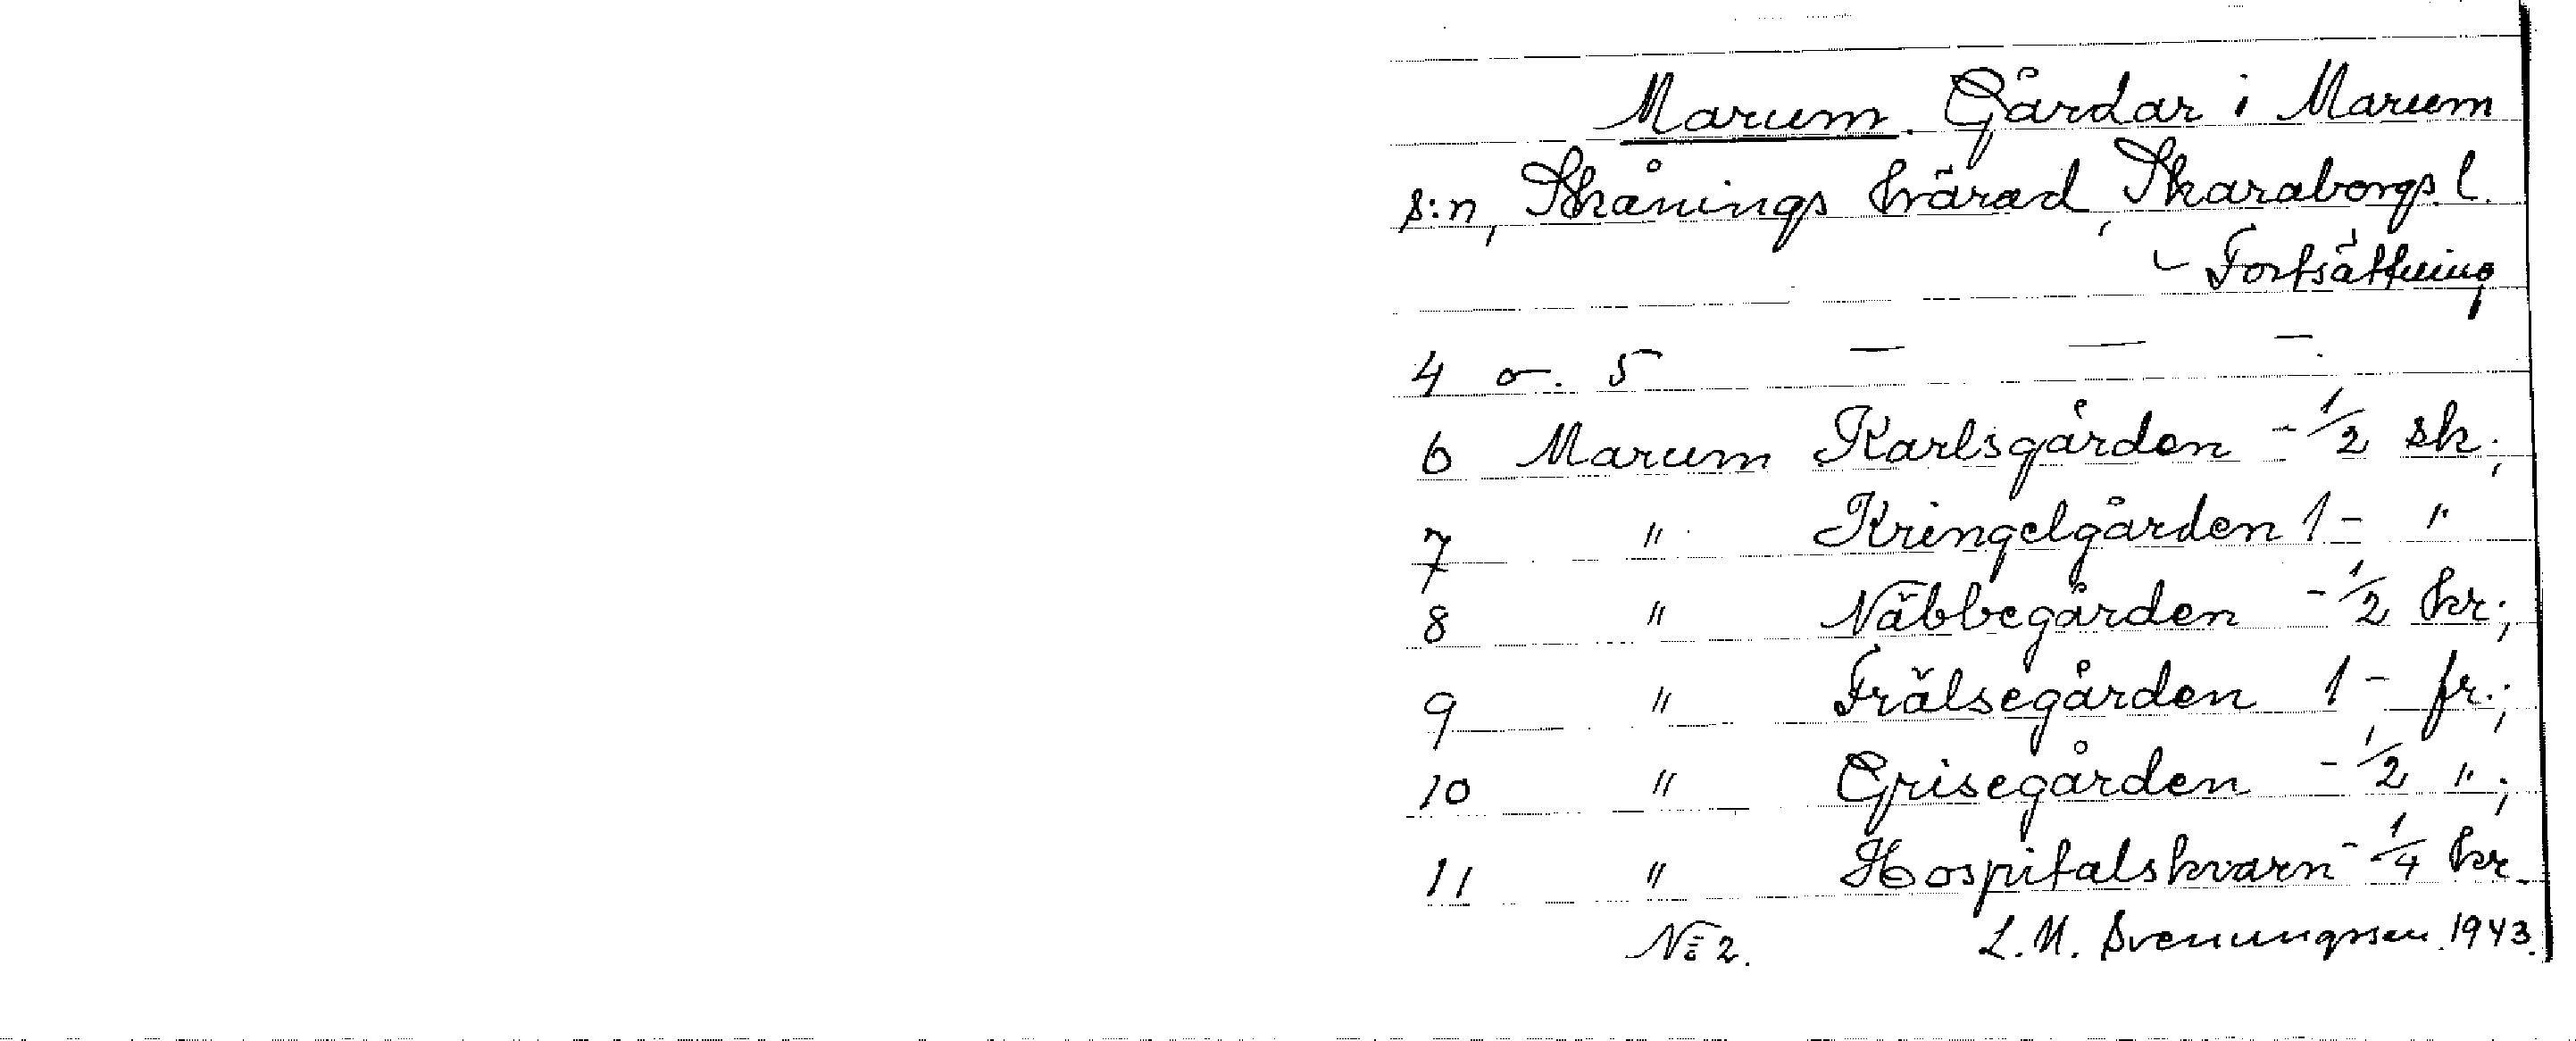 Marum. Gårdar i Marum
s:n, Skånings härad, Skaraborgs l.
- Fortsättning
4 o. 5 — — —.
6 Marum Karlsgården - 1/2 sk.;
7 " Kringelgården 1 - "
8 " Näbbegården - 1/2 kr.;
9 " Frälsegården 1 - fr.;
10 " Grisegården - 1/2 ";
11 " Hospitalskvarn - 1/4 kr.
No 2. L. M. Svenungsson. 1943.